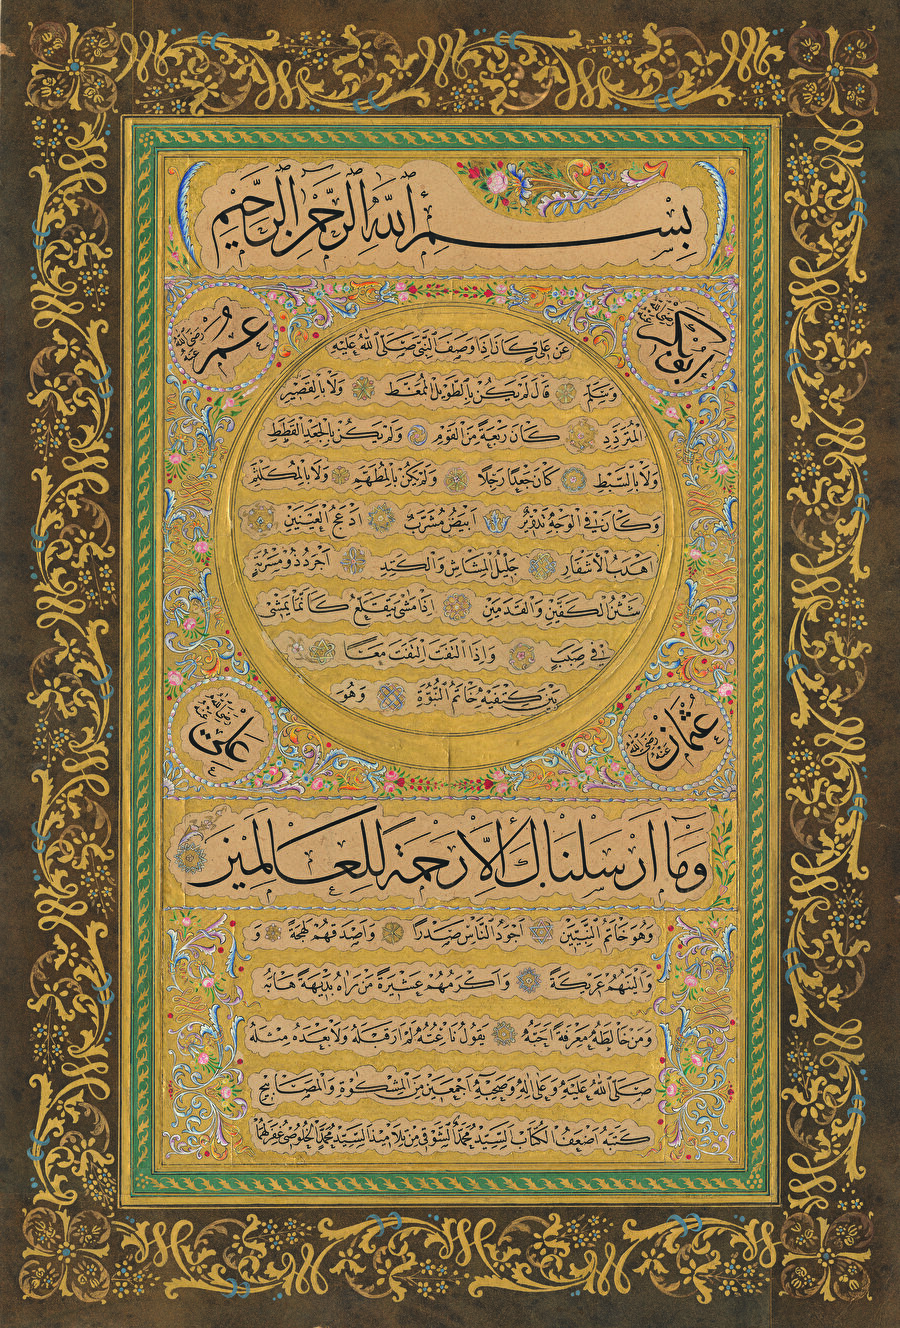 بسم الله الرحمن الرحيم
ابو بكر رضي الله عنه
عمر رضي الله عنه
عن علي كان اذا وصف النبي صلى الله عليه
وسلم قال لم يكن بالطويل الممغط ولا بالقصير
المتردد كان ربعة من القوم ولم يكن بالجعد القطط
ولا بالسبط كان جعدا رجلا ولم يكن بالمطهم ولا بالمكلثم
وكان في الوجه تدوير ابيض مشرب ادعج العينين
اهدب الاشفار جليل المشاش والكتد اجرد ذو مسربة
شثن الكفين والقدمين اذا مشى يتقلع كانما يمشي
في صبب واذا التفت التفت معا
بين كتفيه خاتم النبوة وهو
عثمان رضي الله عنه
علي رضي الله عنه
وما ارسلناك الا رحمة للعالمين
وهو خاتم النبيين اجود الناس صدرا واصدقهم لهجة و
والينهم عريكة واكرمهم عشيرة من راه بديهة هابه
ومن خالطه معرفة احبه يقول ناعته لم ار قبله ولا بعده مثله
صلى الله عليه وعلى اله وصحبه اجمعين من المشكوة والمصابيح
كتبه اضعف الكتاب السيد محمد الشوقي من تلاميذ السيد محمد الخلوصي غفر لهما